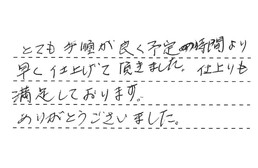 とても手順が良く予定の時間より
早く仕上げて頂きました。仕上りも
満足しております。
ありがとうございました。